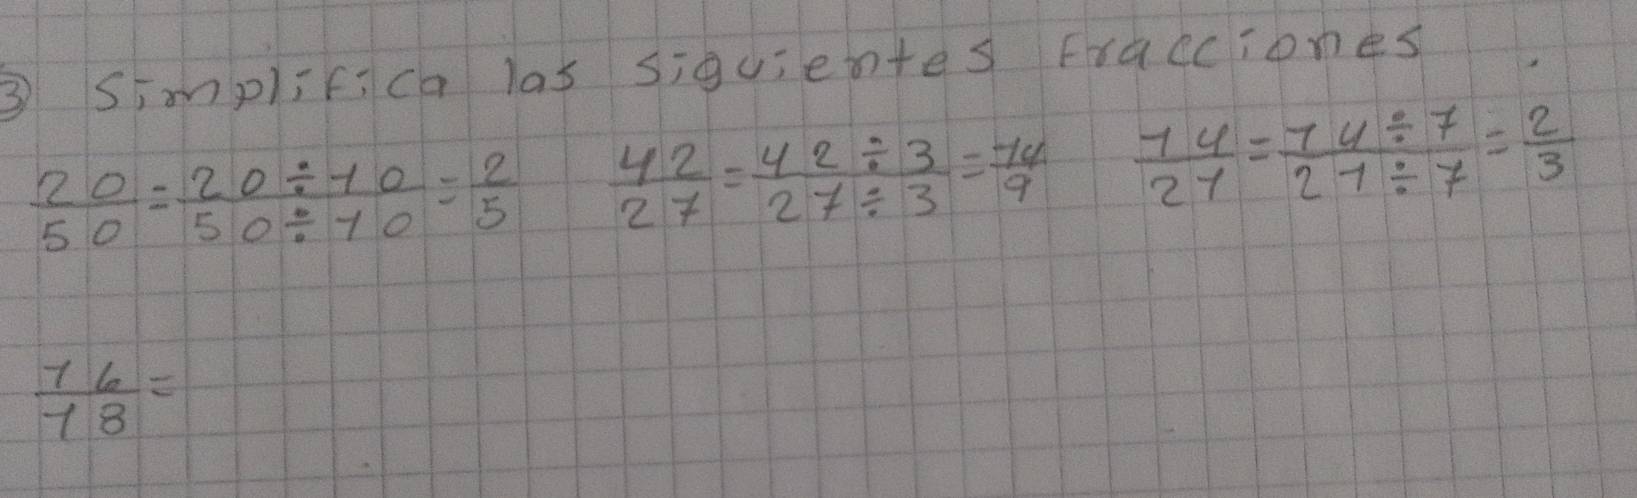 3) Simplifica las siguientes fracciones.
20/50 = 20÷10/50÷10 = 2/5 42/27 = 42÷3/27÷3 = 14/9 14/21 = 14÷7/21÷7 = 2/3
16/18 =